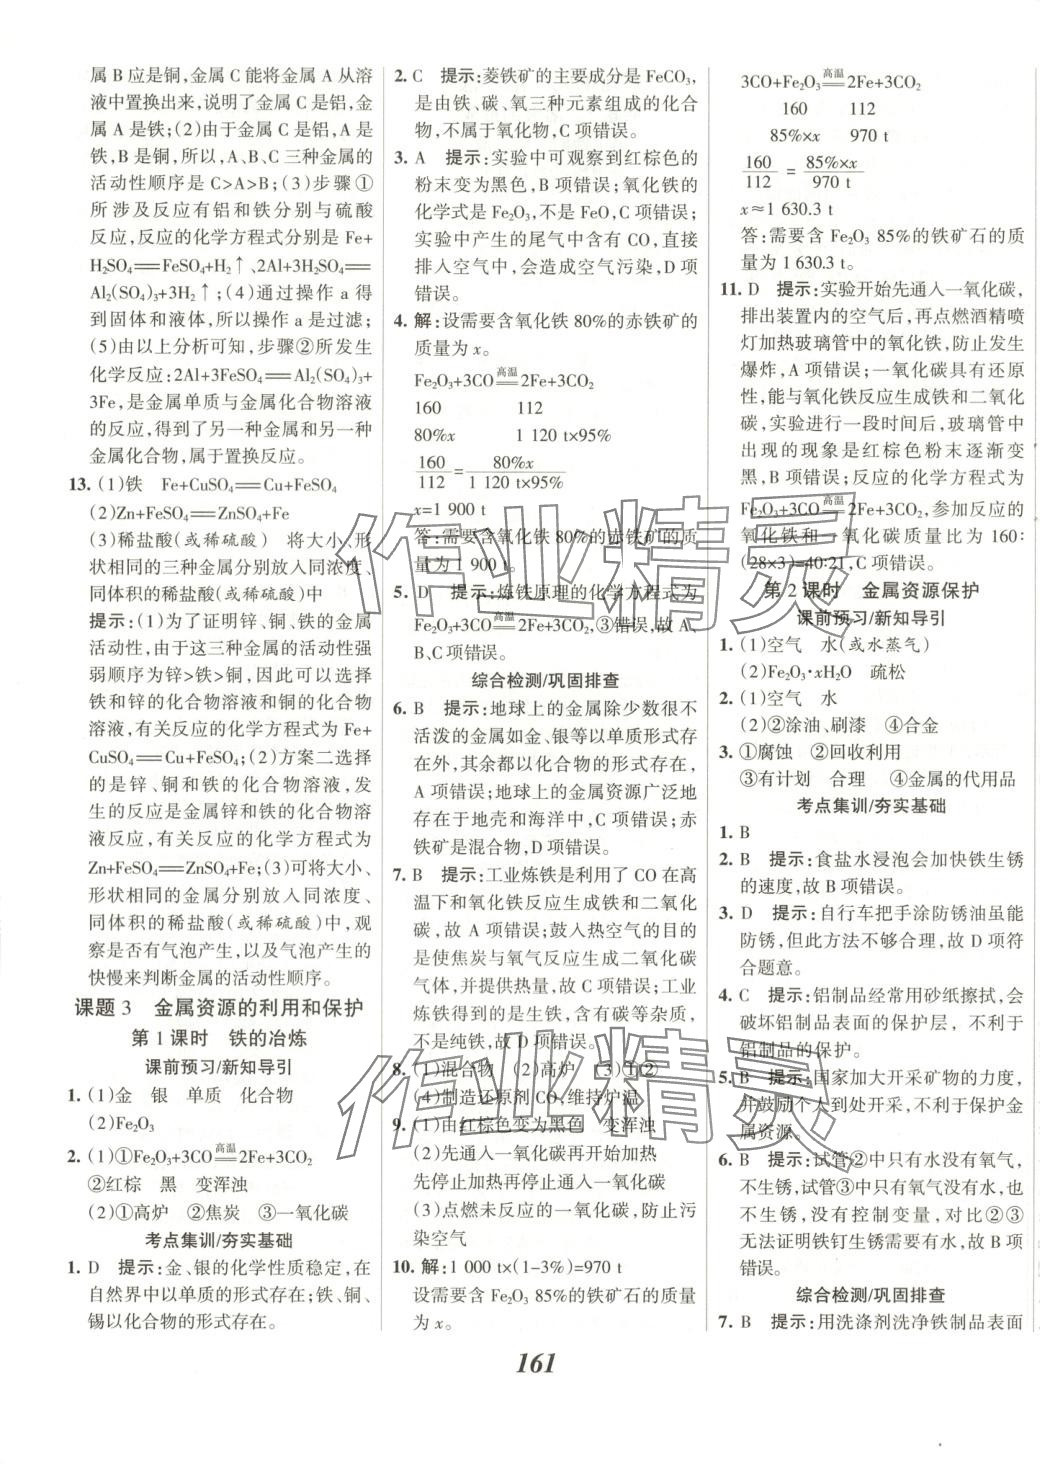 属 B 应是铜,金属 C 能将金属 A 从溶
液中置换出来,说明了金属 C 是铝,金
属 A 是铁;(2)由于金属 C 是铝,A 是
铁,B 是铜,所以,A、B、C 三种金属的
活动性顺序是 C>A>B;(3)步骤①
所涉及反应有铝和铁分别与硫酸
反应,反应的化学方程式分别是 Fe+
H₂SO₄══FeSO₄+H₂↑、2Al+3H₂SO₄══
Al₂(SO₄)₃+3H₂↑;(4)通过操作 a 得
到固体和液体,所以操作 a 是过滤;
(5)由以上分析可知,步骤②所发生
化学反应:2Al+3FeSO₄══Al₂(SO₄)₃+
3Fe,是金属单质与金属化合物溶液
的反应,得到了另一种金属和另一种
金属化合物,属于置换反应。
13. (1)铁 Fe+CuSO₄══Cu+FeSO₄
(2)Zn+FeSO₄══ZnSO₄+Fe
(3)稀盐酸(或稀硫酸) 将大小、形
状相同的三种金属分别放入同浓度、
同体积的稀盐酸(或稀硫酸)中
提示:(1)为了证明锌、铜、铁的金属
活动性,由于这三种金属的活动性强
弱顺序为锌>铁>铜,因此可以选择
铁和锌的化合物溶液和铜的化合物
溶液,有关反应的化学方程式为 Fe+
CuSO₄══Cu+FeSO₄;(2)方案二选择
的是锌、铜和铁的化合物溶液,发
生的反应是金属锌和铁的化合物溶
液反应,有关反应的化学方程式为
Zn+FeSO₄══ZnSO₄+Fe;(3)可将大小、
形状相同的金属分别放入同浓度、
同体积的稀盐酸(或稀硫酸)中,观
察是否有气泡产生,以及气泡产生的
快慢来判断金属的活动性顺序。
课题 3 金属资源的利用和保护
第 1 课时 铁的冶炼
课前预习/新知导引
1. (1)金 银 单质 化合物
(2)Fe₂O₃
2. (1)①Fe₂O₃+3CO 高温══ 2Fe+3CO₂
②红棕 黑 变浑浊
(2)①高炉 ②焦炭 ③一氧化碳
考点集训/夯实基础
1. D 提示:金、银的化学性质稳定,在
自然界中以单质的形式存在;铁、铜、
锡以化合物的形式存在。
2. C 提示:菱铁矿的主要成分是 FeCO₃,
是由铁、碳、氧三种元素组成的化合
物,不属于氧化物,C 项错误。
3. A 提示:实验中可观察到红棕色的
粉末变为黑色,B 项错误;氧化铁的
化学式是 Fe₂O₃,不是 FeO,C 项错误;
实验中产生的尾气中含有 CO,直接
排入空气中,会造成空气污染,D 项
错误。
4. 解:设需要含氧化铁 80%的赤铁矿的
质量为 x。
Fe₂O₃+3CO 高温══ 2Fe+3CO₂
160 112
80%x 1 120 t×95%
160/112 = 80%x/(1 120 t×95%)
x=1 900 t
答:需要含氧化铁 80%的赤铁矿的质
量为 1 900 t。
5. D 提示:炼铁原理的化学方程式为
Fe₂O₃+3CO 高温══ 2Fe+3CO₂,③错误,故 A、
B、C 项错误。
综合检测/巩固排查
6. B 提示:地球上的金属除少数很不
活泼的金属如金、银等以单质形式存
在外,其余都以化合物的形式存在,
A 项错误;地球上的金属资源广泛地
存在于地壳和海洋中,C 项错误;赤
铁矿是混合物,D 项错误。
7. B 提示:工业炼铁是利用了 CO 在高
温下和氧化铁反应生成铁和二氧化
碳,故 A 项错误;鼓入热空气的目的
是使焦炭与氧气反应生成二氧化碳
气体,并提供热量,故 C 项错误;工业
炼铁得到的是生铁,含有碳等杂质,
不是纯铁,故 D 项错误。
8. (1)混合物 (2)高炉 (3)①②
(4)制造还原剂 CO、维持炉温
9. (1)由红棕色变为黑色 变浑浊
(2)先通入一氧化碳再开始加热
先停止加热再停止通入一氧化碳
(3)点燃未反应的一氧化碳,防止污
染空气
10. 解:1 000 t×(1-3%)=970 t
设需要含 Fe₂O₃ 85%的铁矿石的质量
为 x。
3CO+Fe₂O₃ 高温══ 2Fe+3CO₂
160 112
85%×x 970 t
160/112 = 85%×x/970 t
x≈1 630.3 t
答:需要含 Fe₂O₃ 85%的铁矿石的质
量为 1 630.3 t。
11. D 提示:实验开始先通入一氧化碳,
排出装置内的空气后,再点燃酒精喷
灯加热玻璃管中的氧化铁,防止发生
爆炸,A 项错误;一氧化碳具有还原
性,能与氧化铁反应生成铁和二氧化
碳,实验进行一段时间后,玻璃管中
出现的现象是红棕色粉末逐渐变
黑,B 项错误;反应的化学方程式为
Fe₂O₃+3CO 高温══ 2Fe+3CO₂,参加反应的
氧化铁和一氧化碳质量比为 160:
(28×3)=40:21,C 项错误。
第 2 课时 金属资源保护
课前预习/新知导引
1. (1)空气 水(或水蒸气)
(2)Fe₂O₃·xH₂O 疏松
2. (1)空气 水
(2)②涂油、刷漆 ④合金
3. ①腐蚀 ②回收利用
③有计划 合理 ④金属的代用品
考点集训/夯实基础
1. B
2. B 提示:食盐水浸泡会加快铁生锈
的速度,故 B 项错误。
3. D 提示:自行车把手涂防锈油虽能
防锈,但此方法不够合理,故 D 项符
合题意。
4. C 提示:铝制品经常用砂纸擦拭,会
破坏铝制品表面的保护层,不利于
铝制品的保护。
5. B 提示:国家加大开采矿物的力度,
并鼓励个人到处开采,不利于保护金
属资源。
6. B 提示:试管②中只有水没有氧气,
不生锈,试管③中只有氧气没有水,也
不生锈,没有控制变量,对比②③
无法证明铁钉生锈需要有水,故 B 项
错误。
综合检测/巩固排查
7. B 提示:用洗涤剂洗净铁制品表面
161
作业精灵
作业精灵